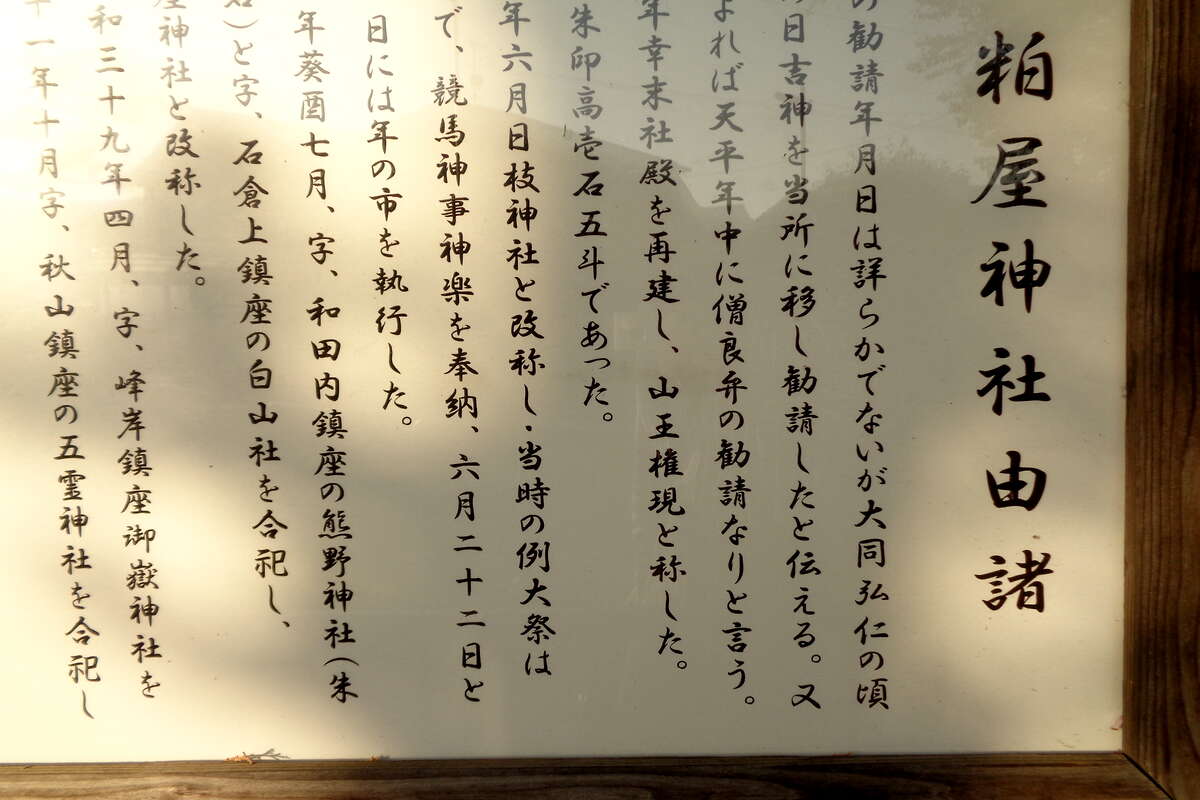 粕屋神社由諸
の勧請年月日は詳らかでないが大同弘仁の頃
の日吉神を当所に移し勧請したと伝える。又
よれば天平年中に僧良弁の勧請なりと言う。
年幸末社殿を再建し、山王権現と称した。
朱印高壱石五斗であった。
年六月日枝神社と改称し・当時の例大祭は
で、競馬神事神楽を奉納、六月二十二日と
日には年の市を執行した。
年葵酉七月、字、和田内鎮座の熊野神社(朱
)と字、石倉上鎮座の白山社を合祀し、
屋神社と改称した。
和三十九年四月、字、峰岸鎮座御嶽神社を
十一年十月字、秋山鎮座の五霊神社を合祀し